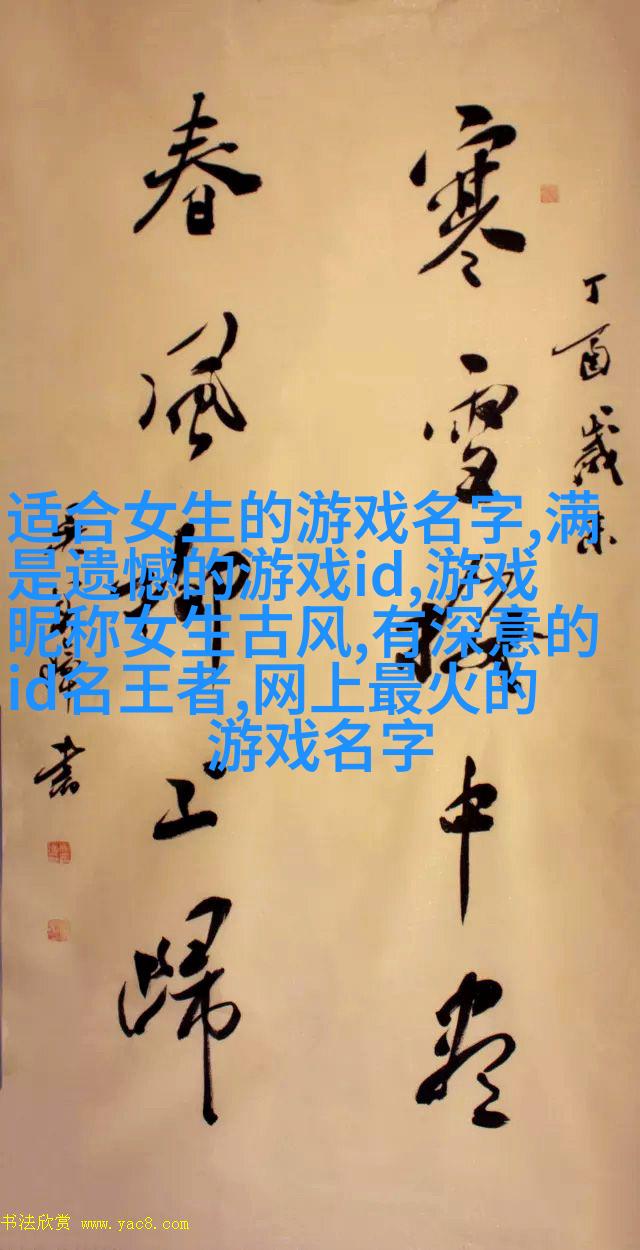 丁酉岁末
寒雪梅中尽
春風柳上歸
书
适合女生的游戏名字,满
是遗憾的游戏id,游戏
昵称女生古风,有深意的
id名王者,网上最火的
游戏名字
书法欣赏 www.yac8.com